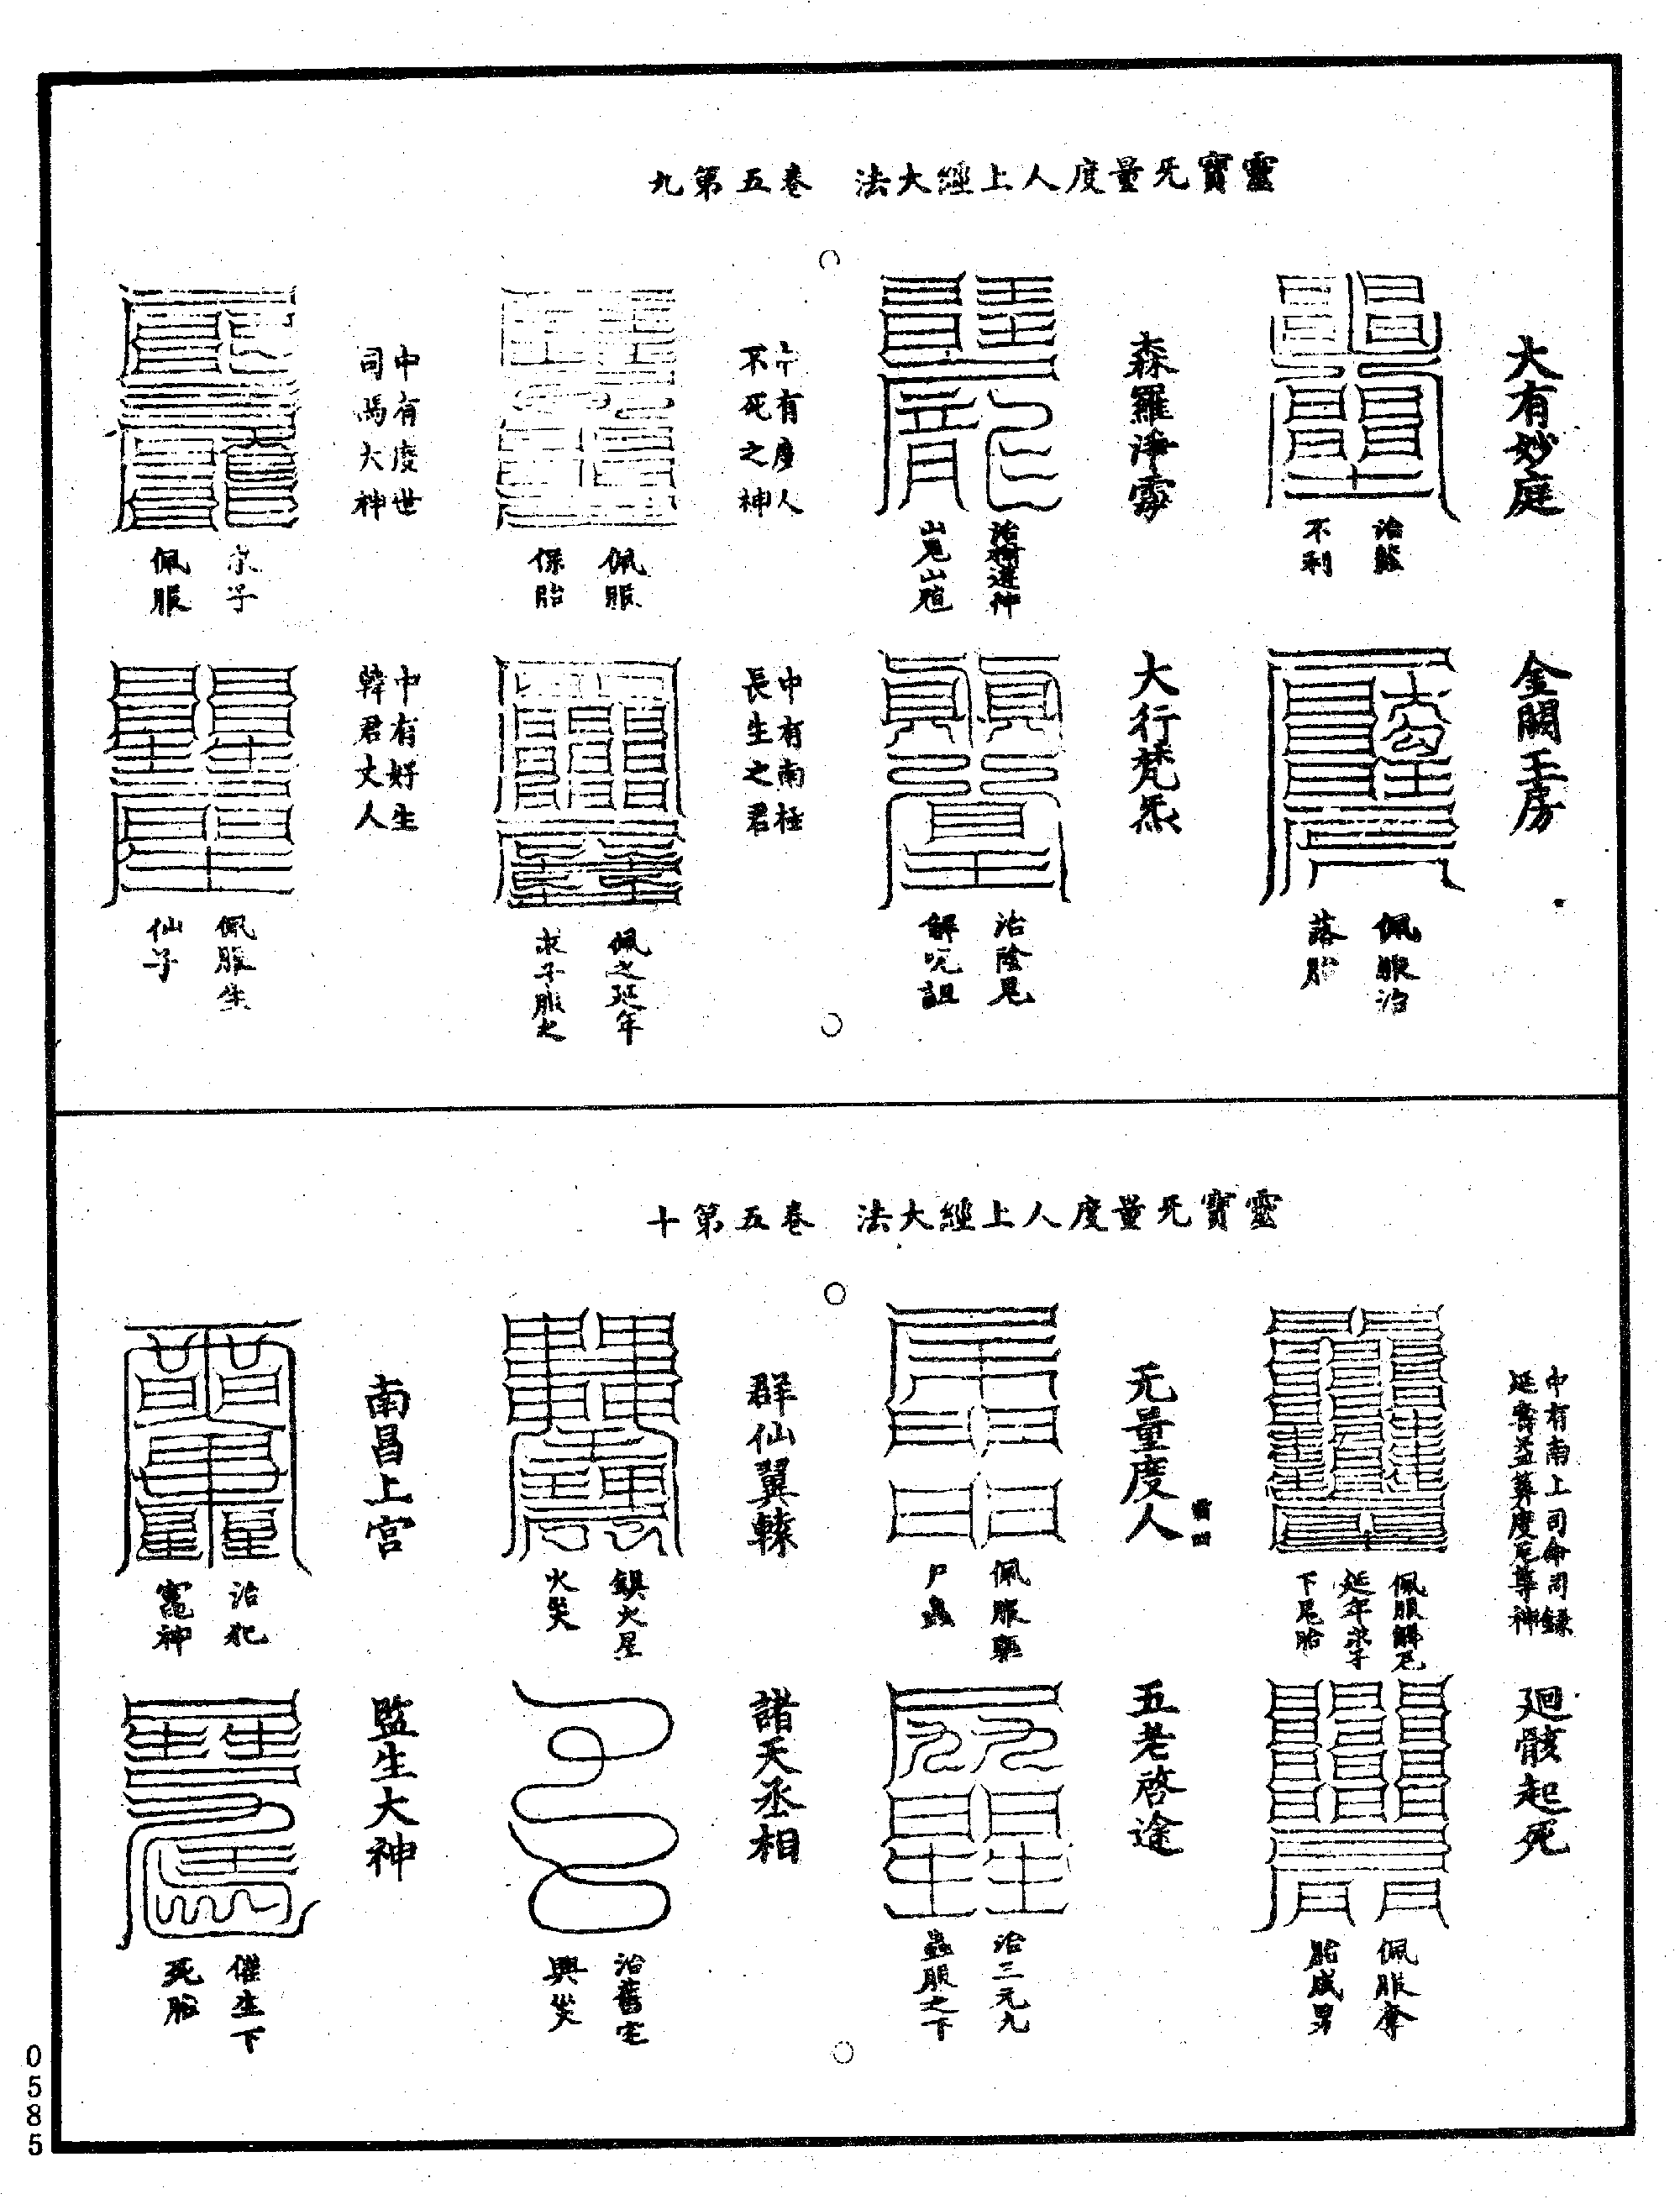 靈寶无量度人上經大法　卷五第九
大有妙庭
治
不利
金闕玉房
佩服治
落胎
森羅淨霐
大行梵炁
治陰鬼
解呪詛
中有度人
不死之神
佩服
保胎
中有南極
長生之君
佩之延年
求子服之
中有度世
司馬大神
求子
佩服
中有好生
韓君丈人
佩服生
仙子
靈寶无量度人上經大法　卷五第十
中有南上司命司錄
延壽益筭度厄尊神
佩服解厄
延年求子
下尸胎
廻骸起死
佩服奪
胎成男
无量度人
佩服驅
尸蟲
五老啓途
治三元九
蟲服之下
群仙翼轅
鎮火星
火災
諸天丞相
治舊宅
興災
南昌上宮
治犯
竈神
監生大神
催生下
死胎
0585